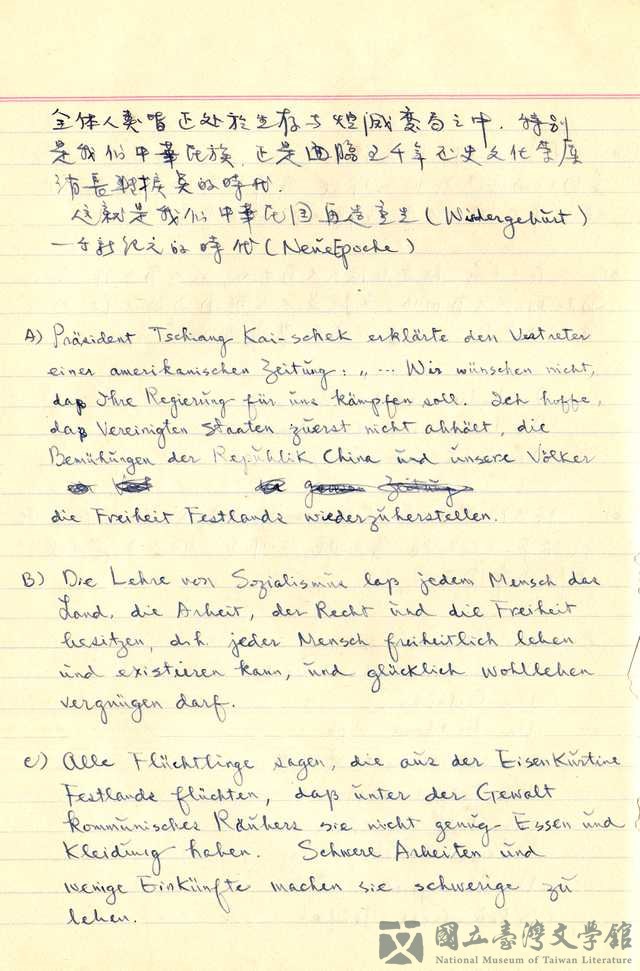 全体人类皆正处於生存与毁灭变局之中，特别
是我们中華民族，正是面臨五千年历史文化荣廢
消長難挨矣的時代．
这就是我们中華民国再造重生（Wiedergeburt）
一个新纪元的時代（NeueEpoche）
A) Präsident Tschiang Kai-schek erklärte den Vertreter
einer amerikanischen Zeitung: „ ... Wir wünschen nicht,
daß Ihre Regierung für uns kämpfen soll. Ich hoffe,
daß Vereinigten Staaten zuerst nicht abhält, die
Bemühungen der Republik China und unsere Völker
die Freiheit Festlands wiederzuherstellen.
B) Die Lehre von Sozialismus laß jedem Mensch das
Land, die Arbeit, der Recht und die Freiheit
besitzen, d.h. jeder Mensch freiheitlich leben
und existieren kann, und glücklich wohlleben
vergnügen darf.
C) Alle Flüchtlinge sagen, die aus der EisenKurtine
Festlands flüchten, daß unter der Gewalt
kommunisches Räubers sie nicht genug Essen und
Kleidung haben. Schwere Arbeiten und
wenige Einkünfte machen sie schwerige zu
leben.
國立臺灣文學館
National Museum of Taiwan Literature